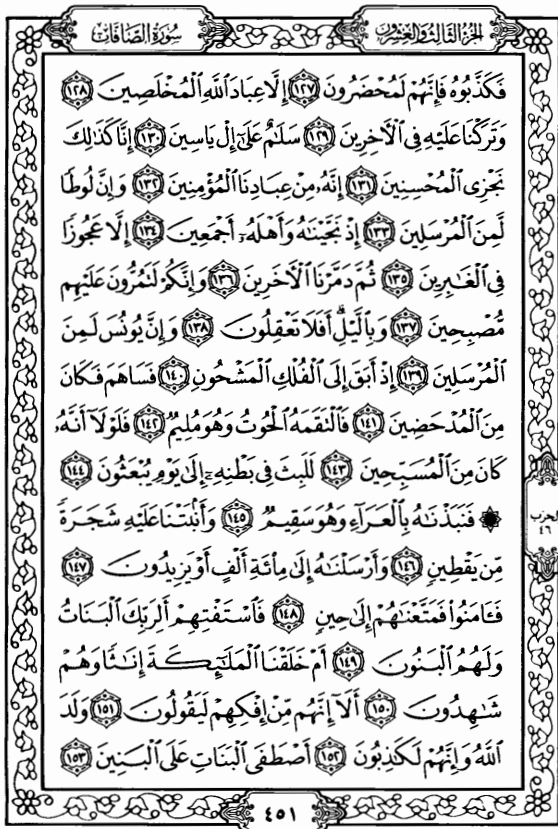 سُورَةُ الصَّافَّاتِ
الجُزءُ الثَّالِثُ وَالعِشْرُونَ
فَكَذَّبُوهُ فَإِنَّهُمْ لَمُحْضَرُونَ ١٢٧ إِلَّا عِبَادَ ٱللَّهِ ٱلْمُخْلَصِينَ ١٢٨
وَتَرَكْنَا عَلَيْهِ فِي ٱلْأَخِرِينَ ١٢٩ سَلَٰمٌ عَلَىٰٓ إِلْ يَاسِينَ ١٣٠ إِنَّا كَذَٰلِكَ
نَجْزِي ٱلْمُحْسِنِينَ ١٣١ إِنَّهُۥ مِنْ عِبَادِنَا ٱلْمُؤْمِنِينَ ١٣٢ وَإِنَّ لُوطًا
لَّمِنَ ٱلْمُرْسَلِينَ ١٣٣ إِذْ نَجَّيْنَٰهُ وَأَهْلَهُۥٓ أَجْمَعِينَ ١٣٤ إِلَّا عَجُوزًا
فِي ٱلْغَٰبِرِينَ ١٣٥ ثُمَّ دَمَّرْنَا ٱلْأَخَرِينَ ١٣٦ وَإِنَّكُمْ لَتَمُرُّونَ عَلَيْهِم
مُّصْبِحِينَ ١٣٧ وَبِٱلَّيْلِۗ أَفَلَا تَعْقِلُونَ ١٣٨ وَإِنَّ يُونُسَ لَمِنَ
ٱلْمُرْسَلِينَ ١٣٩ إِذْ أَبَقَ إِلَى ٱلْفُلْكِ ٱلْمَشْحُونِ ١٤٠ فَسَاهَمَ فَكَانَ
مِنَ ٱلْمُدْحَضِينَ ١٤١ فَٱلْتَقَمَهُ ٱلْحُوتُ وَهُوَ مُلِيمٌ ١٤٢ فَلَوْلَآ أَنَّهُۥ
كَانَ مِنَ ٱلْمُسَبِّحِينَ ١٤٣ لَلَبِثَ فِي بَطْنِهِۦٓ إِلَىٰ يَوْمِ يُبْعَثُونَ ١٤٤
۞ فَنَبَذْنَٰهُ بِٱلْعَرَآءِ وَهُوَ سَقِيمٌ ١٤٥ وَأَنۢبَتْنَا عَلَيْهِ شَجَرَةً
مِّن يَقْطِينٍ ١٤٦ وَأَرْسَلْنَٰهُ إِلَىٰ مِا۟ئَةِ أَلْفٍ أَوْ يَزِيدُونَ ١٤٧
فَـَٔامَنُوا۟ فَمَتَّعْنَٰهُمْ إِلَىٰ حِينٍ ١٤٨ فَٱسْتَفْتِهِمْ أَلِرَبِّكَ ٱلْبَنَاتُ
وَلَهُمُ ٱلْبَنُونَ ١٤٩ أَمْ خَلَقْنَا ٱلْمَلَٰٓئِكَةَ إِنَٰثًا وَهُمْ
شَٰهِدُونَ ١٥٠ أَلَآ إِنَّهُم مِّنْ إِفْكِهِمْ لَيَقُولُونَ ١٥١ وَلَدَ
ٱللَّهُ وَإِنَّهُمْ لَكَٰذِبُونَ ١٥٢ أَصْطَفَى ٱلْبَنَاتِ عَلَى ٱلْبَنِينَ ١٥٣
الحزب
٤٦
٤٥١